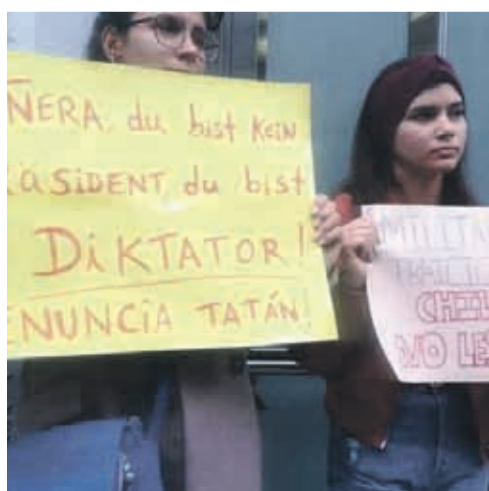 ÑERA, du bist KEiN
ÄSiDENT, du bist
DiKTATOR!
ENUNCiA TATÁN!
CHIL
NO LE